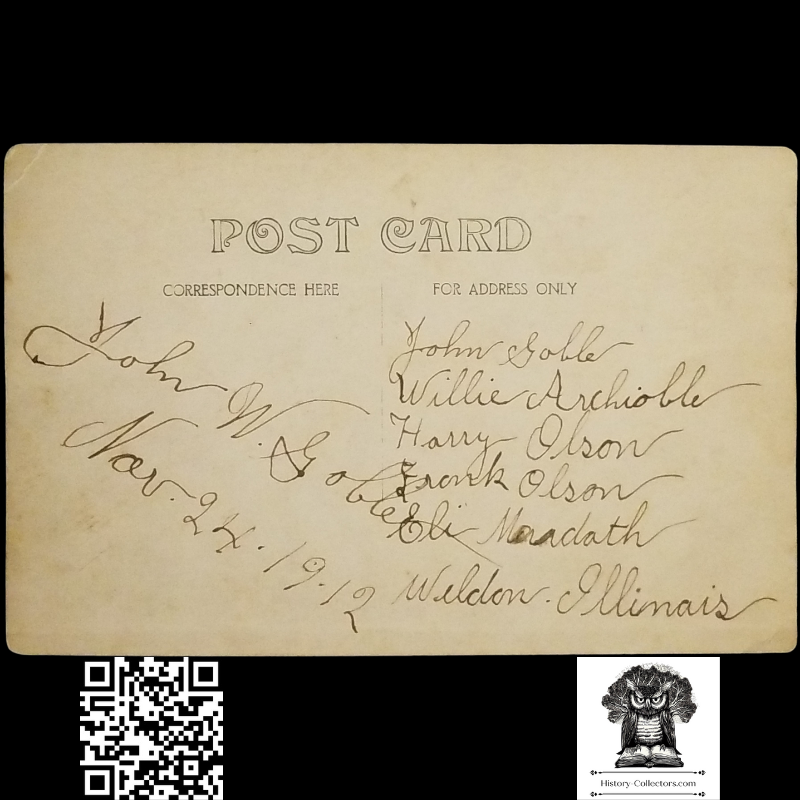 POST CARD
CORRESPONDENCE HERE
FOR ADDRESS ONLY
John W. Goble
Nov. 24. 1912
John Goble
Willie Archioble
Harry Olson
Frank Olson
Eli
Weldon. Illinois
History-Collectors.com